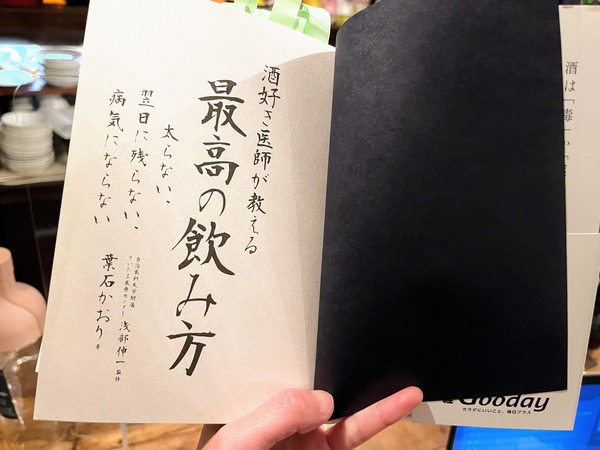 酒好き医師が教える
最高の飲み方
太らない、
翌日に残らない、
病気にならない
自治医科大学附属
さいたま医療センター
浅部伸一 監修
葉石かおり 著
酒は「毒」か「
Gooday
カラダにいいこと、毎日プラス